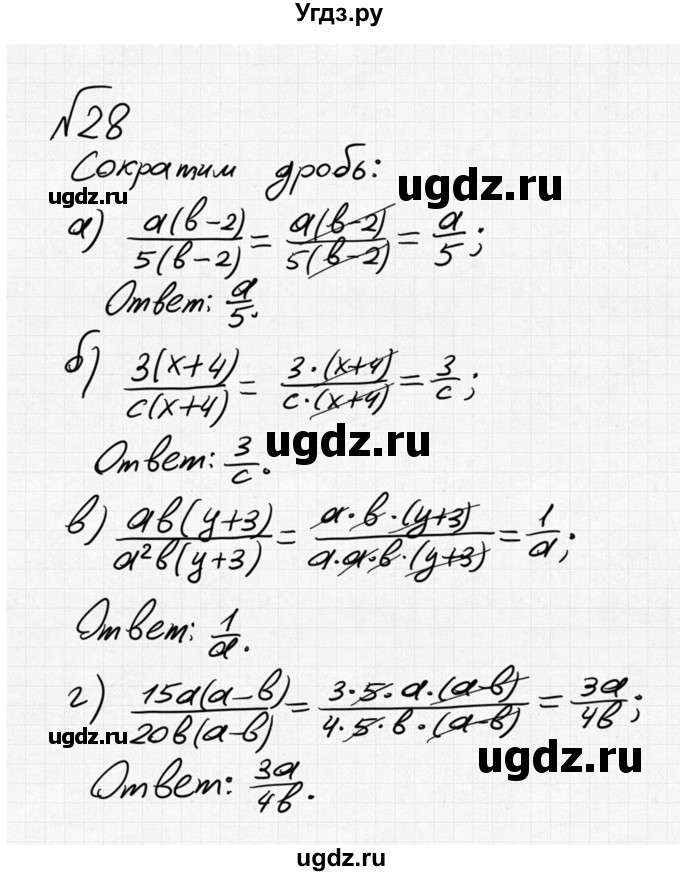 Угдз.ру
№28
Сократим дробь:
ugdz.ru
ugdz.ru
а) a(b-2)/5(b-2) = a(b-2)/5(b-2) = a/5;
Ответ: a/5.
б) 3(x+4)/c(x+4) = 3·(x+4)/c·(x+4) = 3/c;
ugdz.ru
Ответ: 3/c.
в) ab(y+3)/a²b(y+3) = a·b·(y+3)/a·a·b·(y+3) = 1/a;
Ответ: 1/a.
г) 15a(a-b)/20b(a-b) = 3·5·a·(a-b)/4·5·b·(a-b) = 3a/4b;
ugdz.ru
ugdz.ru
Ответ: 3a/4b.
ugdz.ru